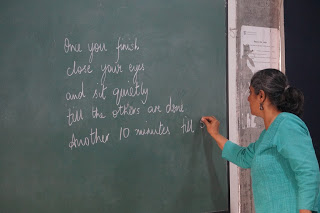 One you finish
close your eyes
and sit quietly
till the others are done
Another 10 minutes till